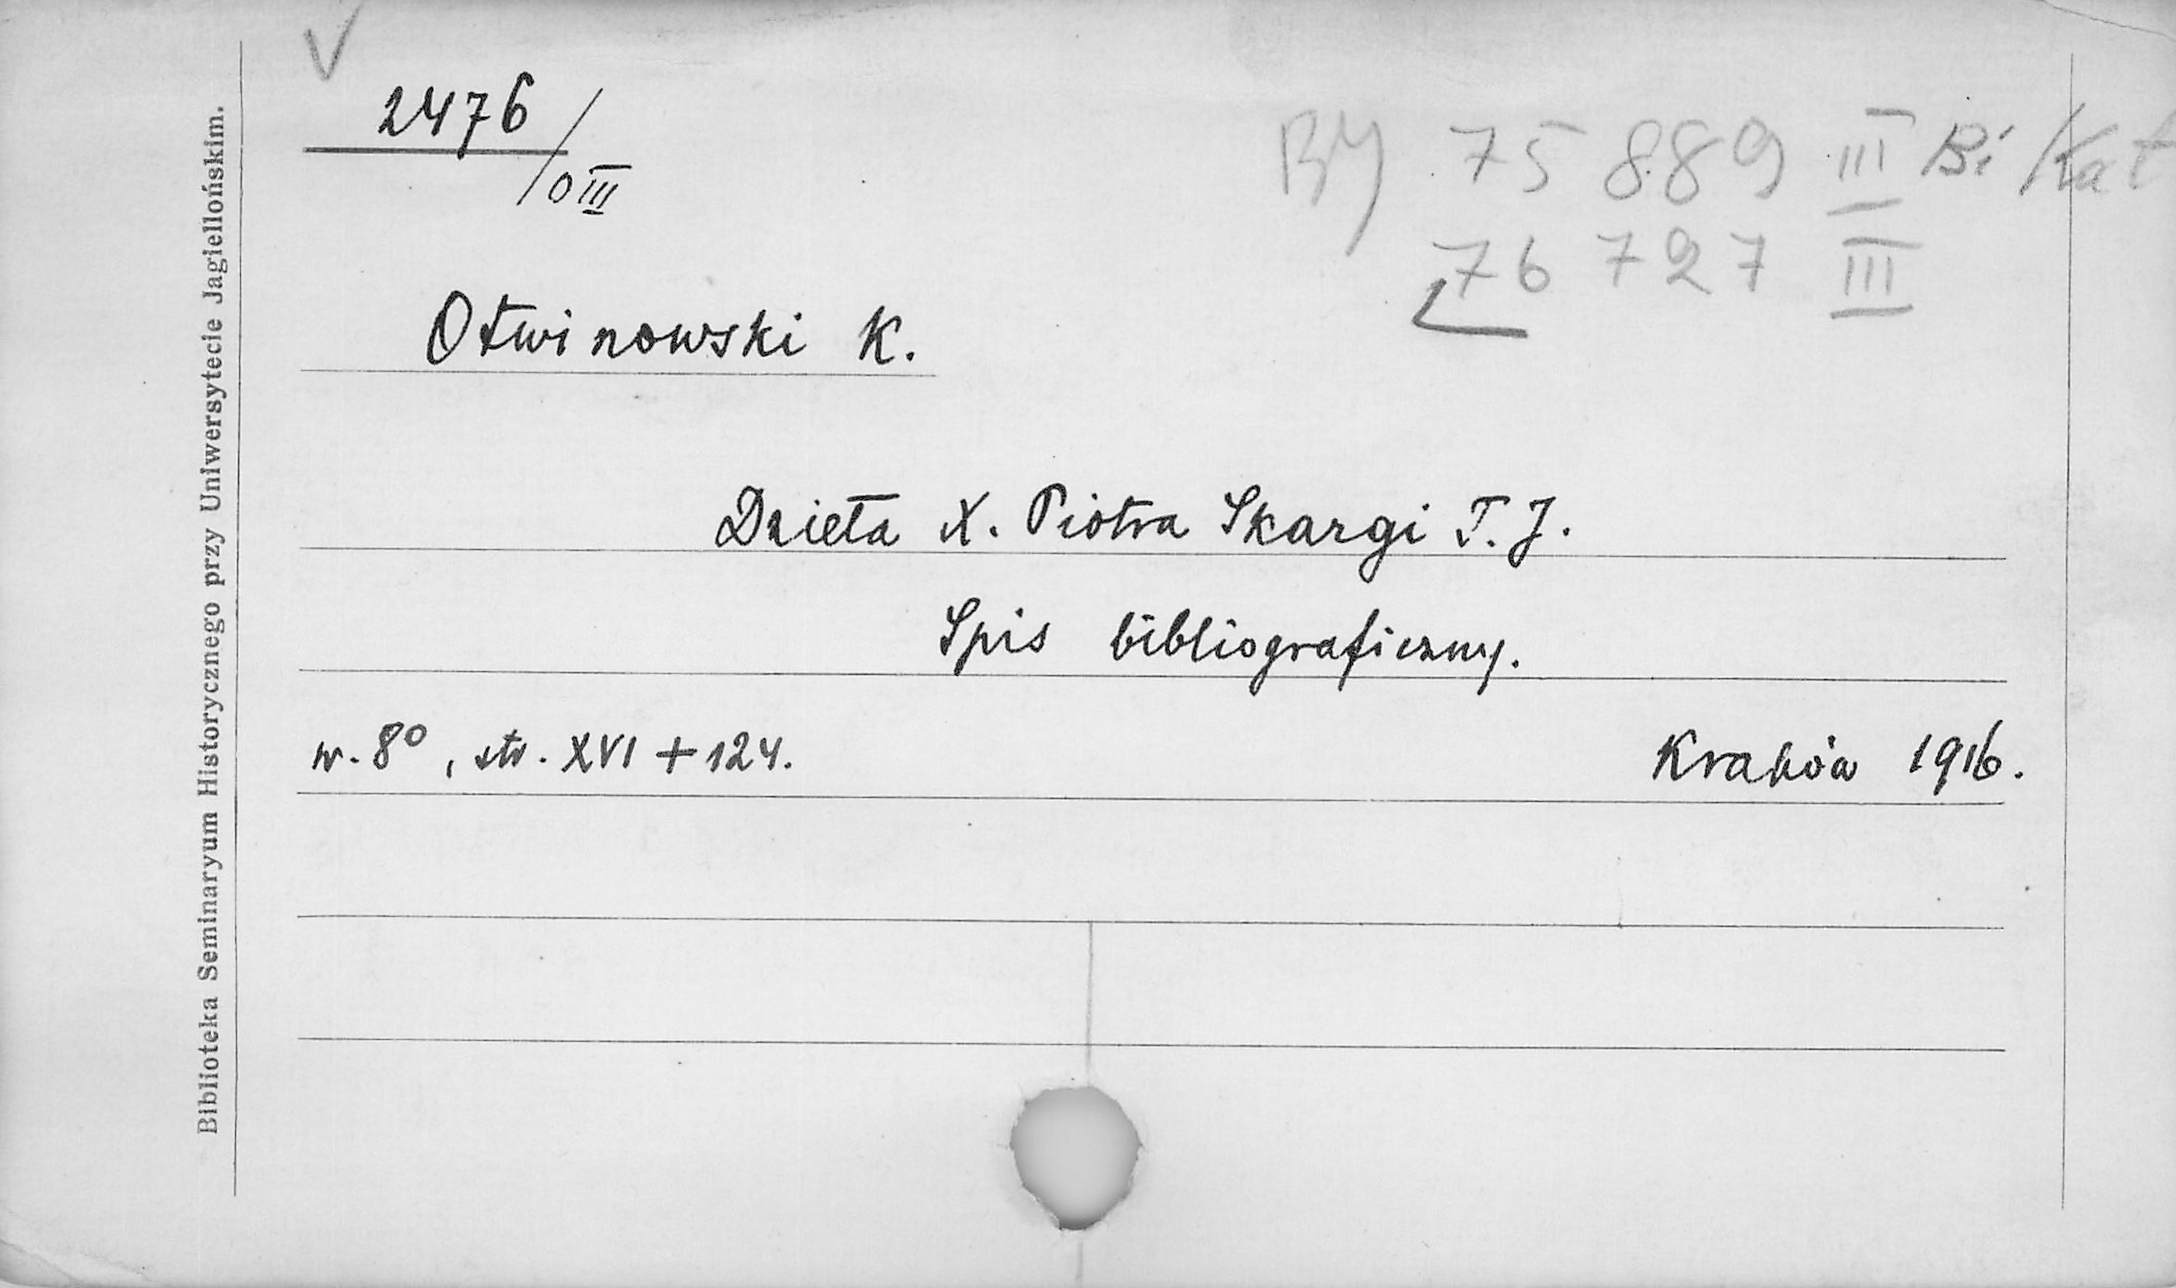 2476/OIII
BJ 75 889 III Bi Kat
76 727 III
Otwinowski K.
Dzieła X. Piotra Skargi T. J.
Spis bibliograficzny.
w. 8°, str. XVI + 124.
Kraków 1916.
Biblioteka Seminaryum Historycznego przy Uniwersytecie Jagiellońskim.